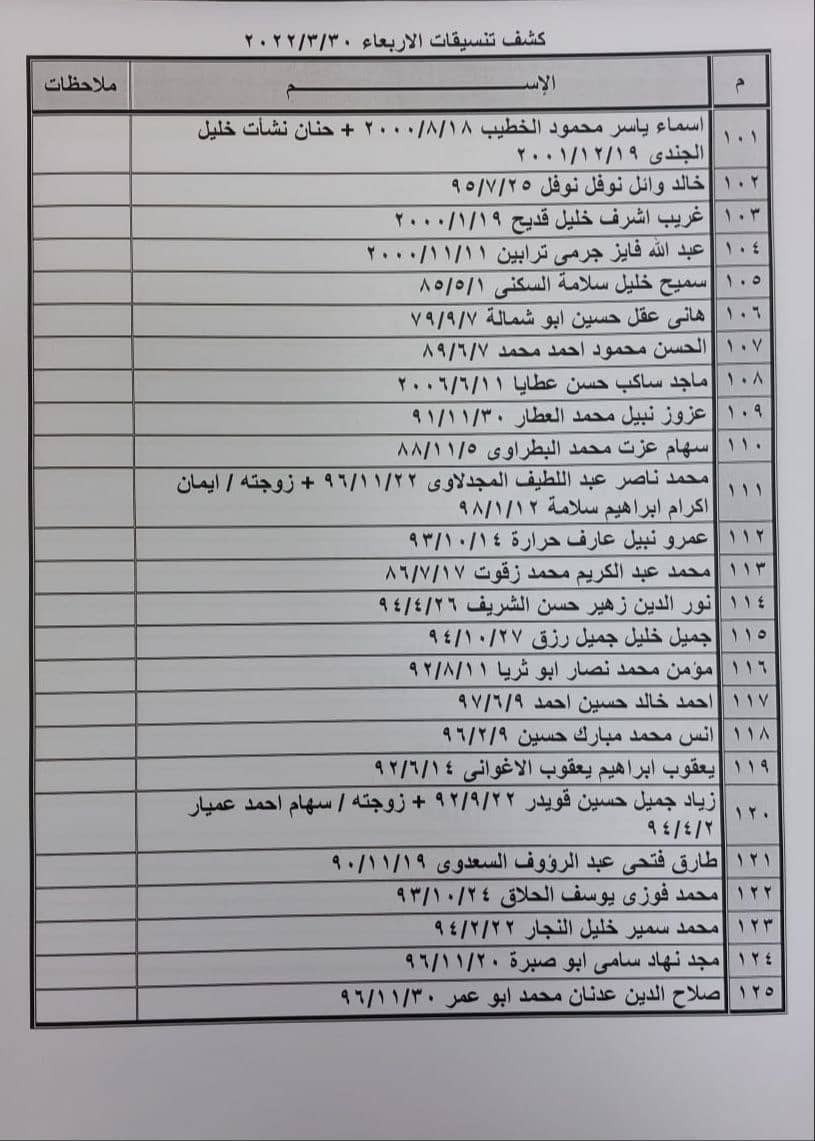 كشف تنسيقات الاربعاء ٢٠٢٢/٣/٣٠
م الإســـــــــــــــــــــم ملاحظات
١٠١ اسماء ياسر محمود الخطيب ٢٠٠٠/٨/١٨ + حنان نشأت خليل
الجندى ٢٠٠١/١٢/١٩
١٠٢ خالد وائل نوفل نوفل ٩٥/٧/٢٥
١٠٣ غريب اشرف خليل قديح ٢٠٠٠/١/١٩
١٠٤ عبد الله فايز جرمى ترابين ٢٠٠٠/١١/١١
١٠٥ سميح خليل سلامة السكنى ٨٥/٥/١
١٠٦ هانى عقل حسين ابو شمالة ٧٩/٩/٧
١٠٧ الحسن محمود احمد محمد ٨٩/٦/٧
١٠٨ ماجد ساكب حسن عطايا ٢٠٠٦/٦/١١
١٠٩ عزوز نبيل محمد العطار ٩١/١١/٣٠
١١٠ سهام عزت محمد البطراوى ٨٨/١١/٥
١١١ محمد ناصر عبد اللطيف المجدلاوى ٩٦/١١/٢٢ + زوجته / ايمان
اكرام ابراهيم سلامة ٩٨/١/١٢
١١٢ عمرو نبيل عارف حرارة ٩٣/١٠/١٤
١١٣ محمد عبد الكريم محمد زقوت ٨٦/٧/١٧
١١٤ نور الدين زهير حسن الشريف ٩٤/٤/٢٦
١١٥ جميل خليل جميل رزق ٩٤/١٠/٢٧
١١٦ مؤمن محمد نصار ابو ثريا ٩٢/٨/١١
١١٧ احمد خالد حسين احمد ٩٧/٦/٩
١١٨ انس محمد مبارك حسين ٩٦/٢/٩
١١٩ يعقوب ابراهيم يعقوب الاغوانى ٩٢/٦/١٤
١٢٠ زياد جميل حسين قويدر ٩٢/٩/٢٢ + زوجته / سهام احمد عميار
٩٤/٤/٢
١٢١ طارق فتحى عبد الرؤوف السعدوى ٩٠/١١/١٩
١٢٢ محمد فوزى يوسف الحلاق ٩٣/١٠/٢٤
١٢٣ محمد سمير خليل النجار ٩٤/٢/٢٢
١٢٤ مجد نهاد سامى ابو صبرة ٩٦/١١/٢٠
١٢٥ صلاح الدين عدنان محمد ابو عمر ٩٦/١١/٣٠